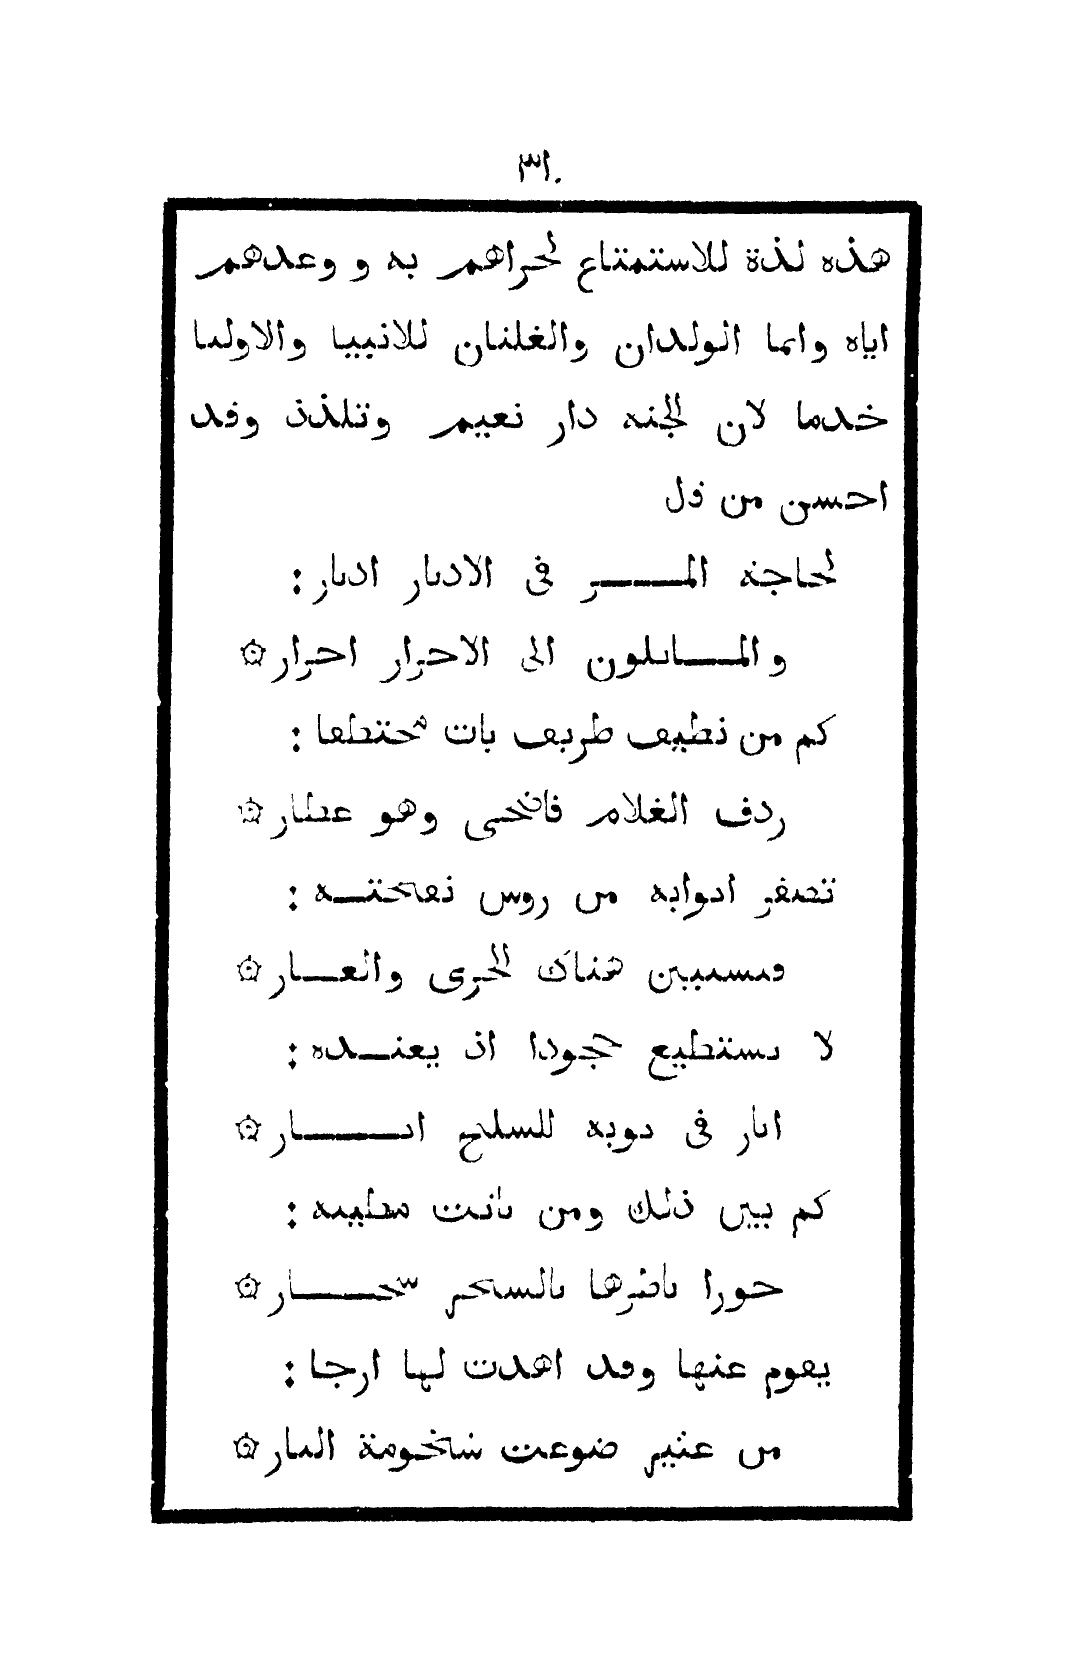 ٣١٠
هذه لذة للاستمتاع لحراهم به و وعدهم
اياه وانما الولدان والغلنان للانبيا والاوليا
خدما لان الجنه دار نعيم وتلذذ وقد
احسن من قل
لحاجة المـــر فى الادبار ادبار :
والمـــايلون الى الاحرار احرار ۞
كم من نظيف ظريف بات ممتطفا :
ردف الغلام فاضحى وهو عطار ۞
تصفر اثوابه من روس نفحتـــه :
فيسبين هناك الخزى والعـــار ۞
لا يستطيع حجودا اذ يعنـــده :
اثار فى ثوبه للسلح اثـــار ۞
كم بين ذلك ومن باتت مطيبه :
حورا ناضرها بالسحر سحـــار ۞
يقوم عنها وقد اهدت لها ارجا :
من عنبر ضوعت شخومة الدار ۞